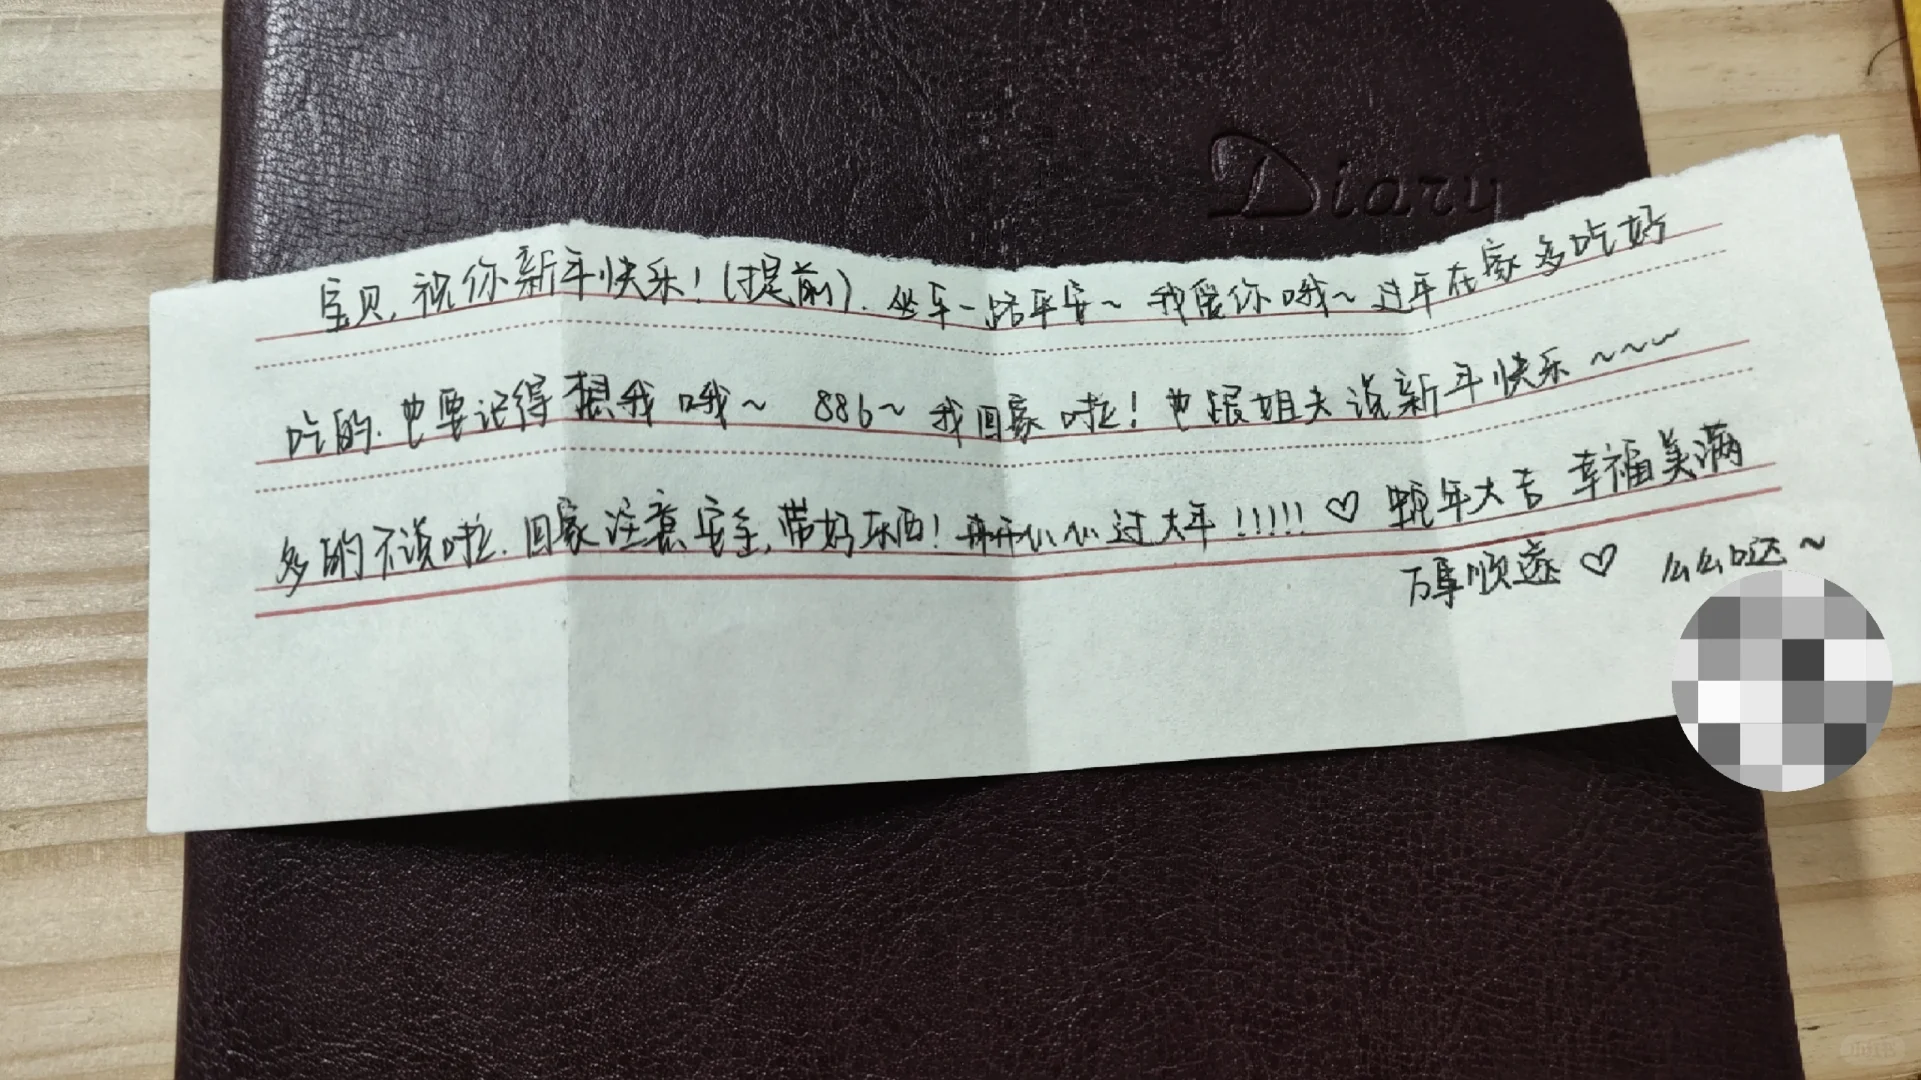 Diary
宝贝,祝你新年快乐!(提前).坐车一路平安~ 我爱你哦~ 过年在家多吃好
吃的.也要记得想我哦~ 886~ 我回家啦!也跟姐夫说新年快乐~~~
多的不说啦.回家注意安全,带好东西!开开心心过大年!!!!!♡ 蛇年大吉 幸福美满
万事顺遂♡ 么么哒~